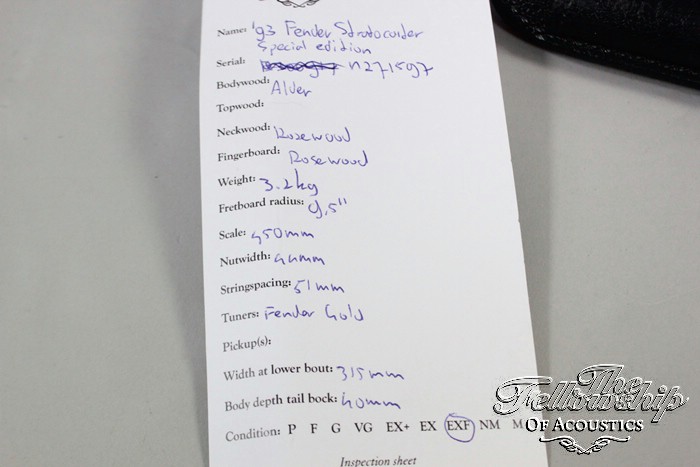 Name: '93 Fender Stratocaster
Special edition
Serial: n271597
Bodywood: Alder
Topwood:
Neckwood: Rosewood
Fingerboard: Rosewood
Weight: 3.2kg
Fretboard radius: 9,5"
Scale: 950mm
Nutwidth: 44mm
Stringspacing: 51mm
Tuners: Fender Gold
Pickup(s):
Width at lower bout: 315mm
Body depth tail bock: 40mm
Condition: P F G VG EX+ EX EXF NM M
Inspection sheet
The
Fellowship
Of Acoustics